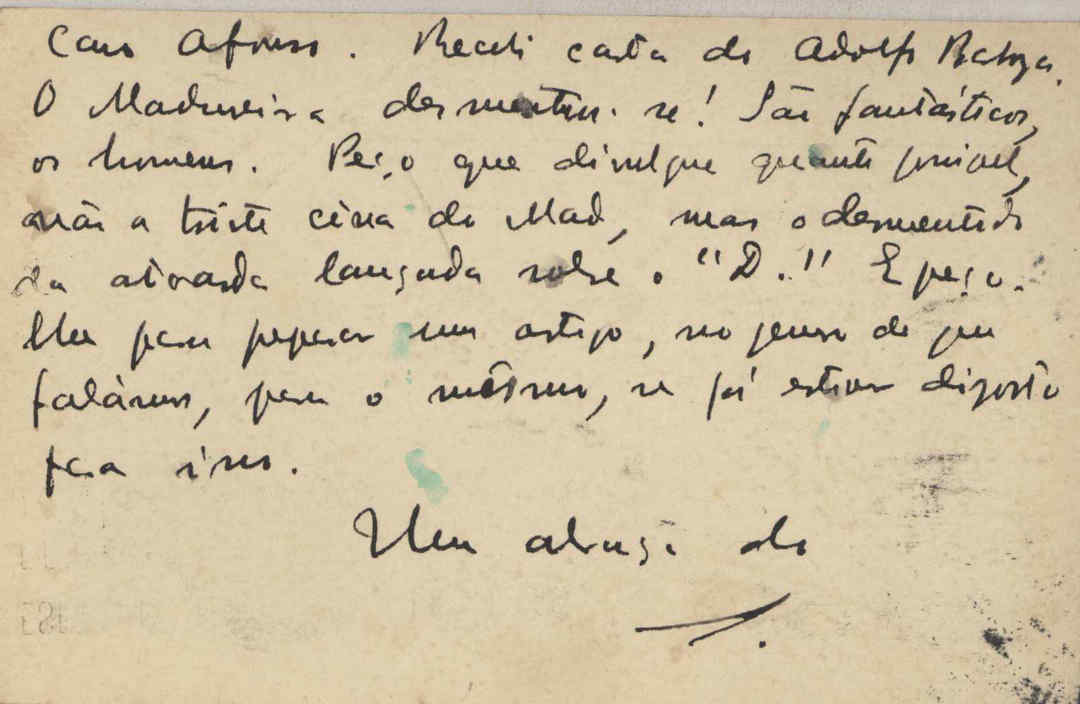 Caro Afonso. Recebi carta do Adolfo Rocha.
O Madureira desmentiu-se! São fantásticos,
os homens. Peço que divulgue quanto possivel,
não a triste cêna do Mad, mas o desmentido
da atoarda lançada sobre o "D." E peço-
lhe para preparar um artigo, no genero do que
falámos, para o mesmo, se já estiver disposto
para isso.
Um abraço do